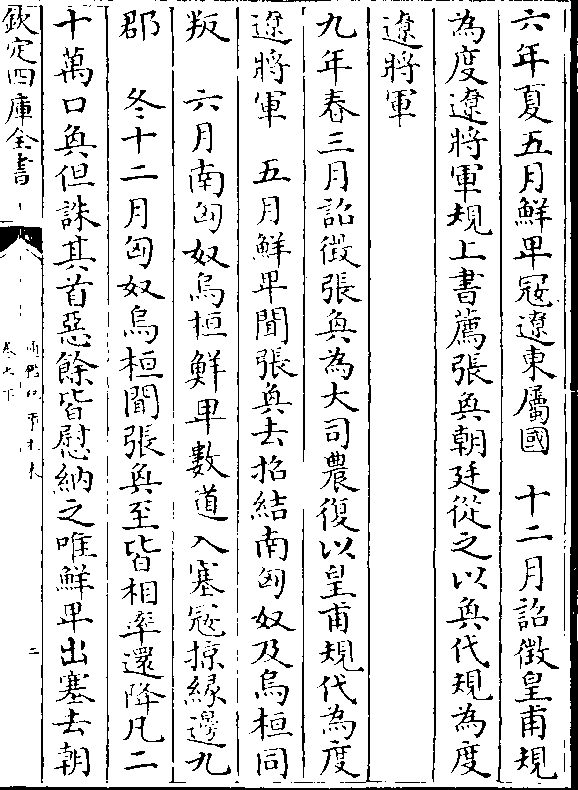 六年夏五月鮮卑冦遼東屬國　十二月詔徴皇甫規
為度遼將軍規上書薦張奐朝廷從之以奐代規為度
遼將軍
九年春三月詔徴張奐為大司農復以皇甫規代為度
遼將軍　五月鮮卑聞張奐去招結南匈奴及烏桓同
叛　六月南匈奴烏桓鮮卑數道入塞冦掠緣邊九
郡　冬十二月匈奴烏桓聞張奐至皆相率還降凡二
十萬口奐但誅其首惡餘皆慰納之唯鮮卑出塞去朝
欽定四庫全書
通鑑紀事本末
卷七下
二